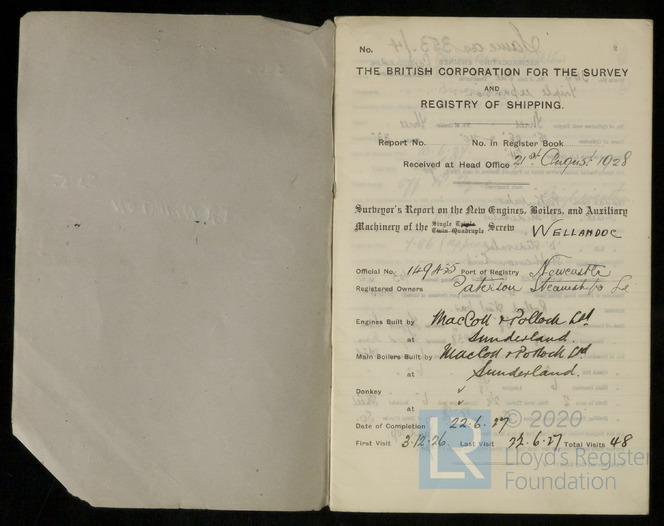 No. Same as 353/4
THE BRITISH CORPORATION FOR THE SURVEY
AND
REGISTRY OF SHIPPING.
Report No. No. in Register Book
Received at Head Office 21st August 1928
Surveyor's Report on the New Engines, Boilers, and Auxiliary
Machinery of the Single Triple Twin Quadruple Screw WELLANDOC
Official No. 149455 Port of Registry Newcastle
Registered Owners Paterson Steamships
Engines Built by MacColl & Pollock Ltd
at Sunderland.
Main Boilers Built by MacColl & Pollock Ltd
at Sunderland.
Donkey ✓
at ✓
Date of Completion 22.6.27
First Visit 3.12.26. Last Visit 22.6.27 Total Visits 48
LR © 2020
Lloyd's Register
Foundation